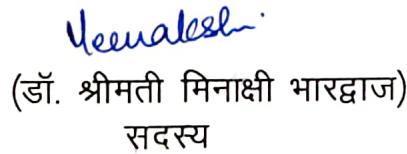 Meenakshi
(डॉ. श्रीमती मिनाक्षी भारद्वाज)
सदस्य